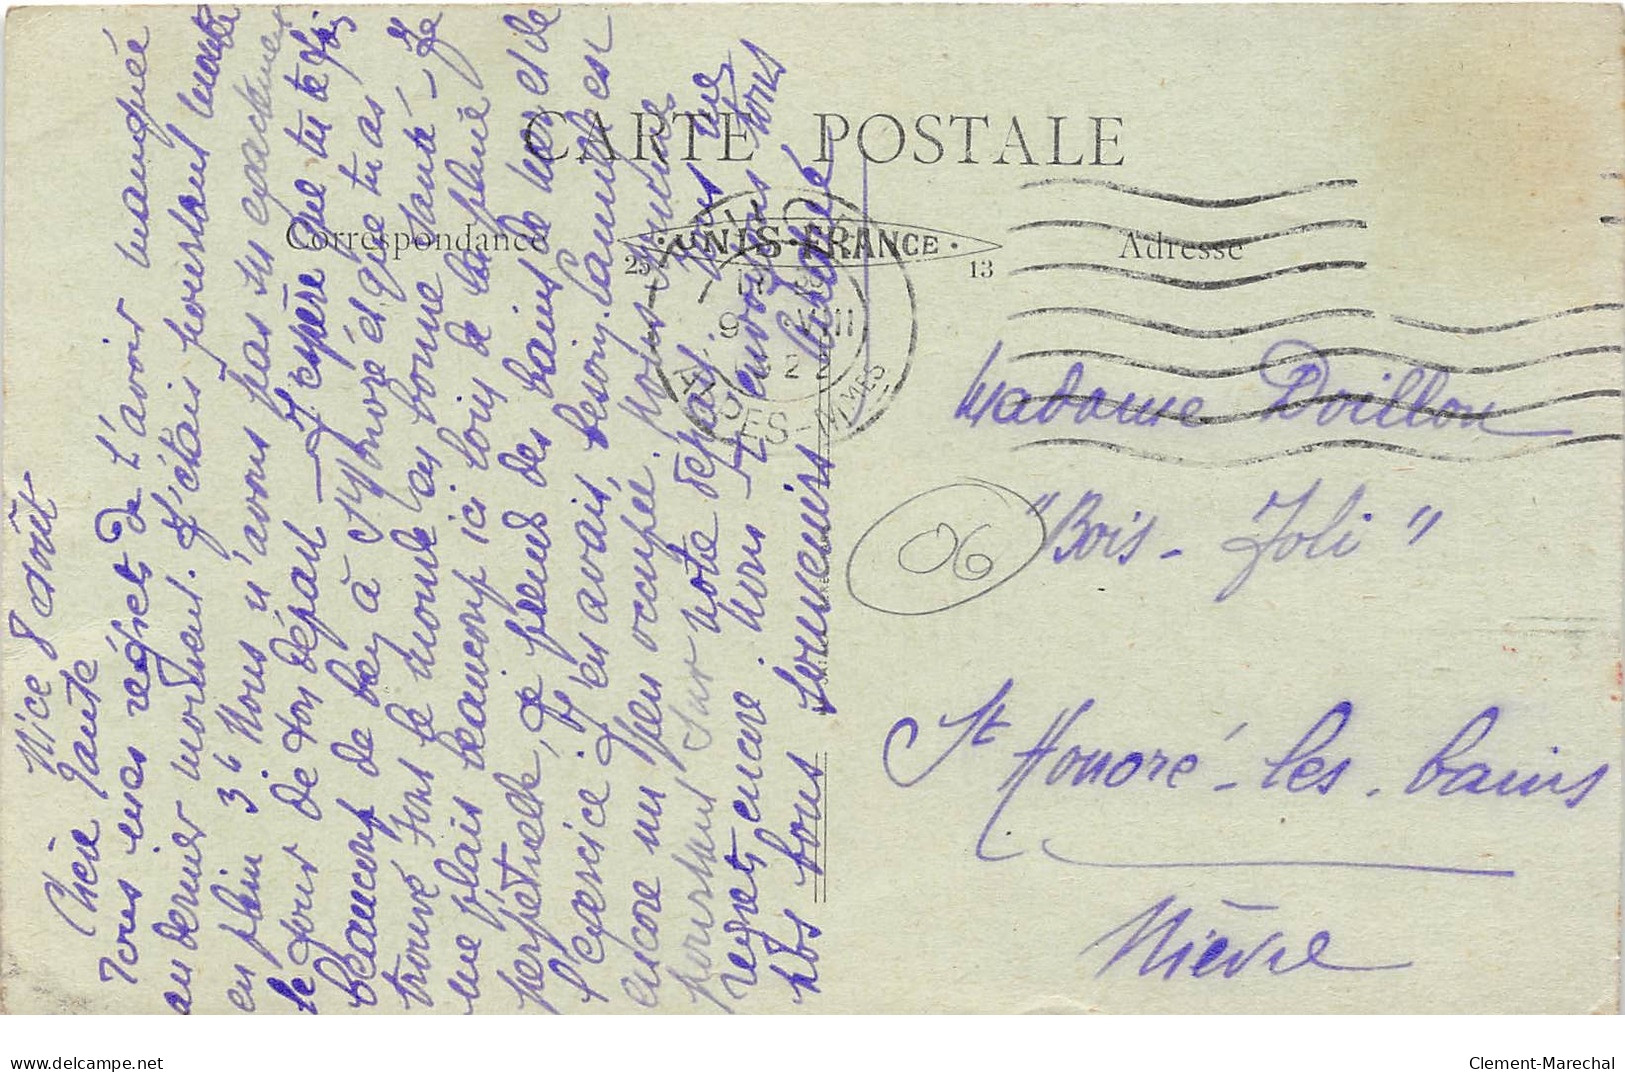 CARTE POSTALE
Correspondance
UNIS-FRANCE
25
13
Adresse
ALPES-MMES
Nice 8 août
Chère Tante
Tous mes regrets de t'avoir manquée
au dernier moment. J'étais pourtant montée
en plein 3h Nous n'avons pas su exactement
le jour de ton départ - J'espère que tu te plais
beaucoup de bey à St Honoré et que tu as
trouvé tout le monde en bonne santé - Je
me plais beaucoup ici loin de la pluie
perpétuelle, je prends des bains de mer et de
l'exercice. J'en avais besoin. Camille est
encore un peu occupée. Nous
pourtant sur note départ. Tous mes
regrets encore Nous t'envoyons tous
nos bons souvenirs
Madame Doillon
"Bois-Joli"
St Honoré-les-bains
Nièvre
06
delcampe.net
Clement-Marechal